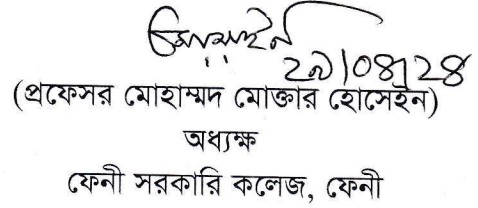 ২৯|০৪|২৪
(প্রফেসর মোহাম্মদ মোক্তার হোসেইন)
অধ্যক্ষ
ফেনী সরকারি কলেজ, ফেনী